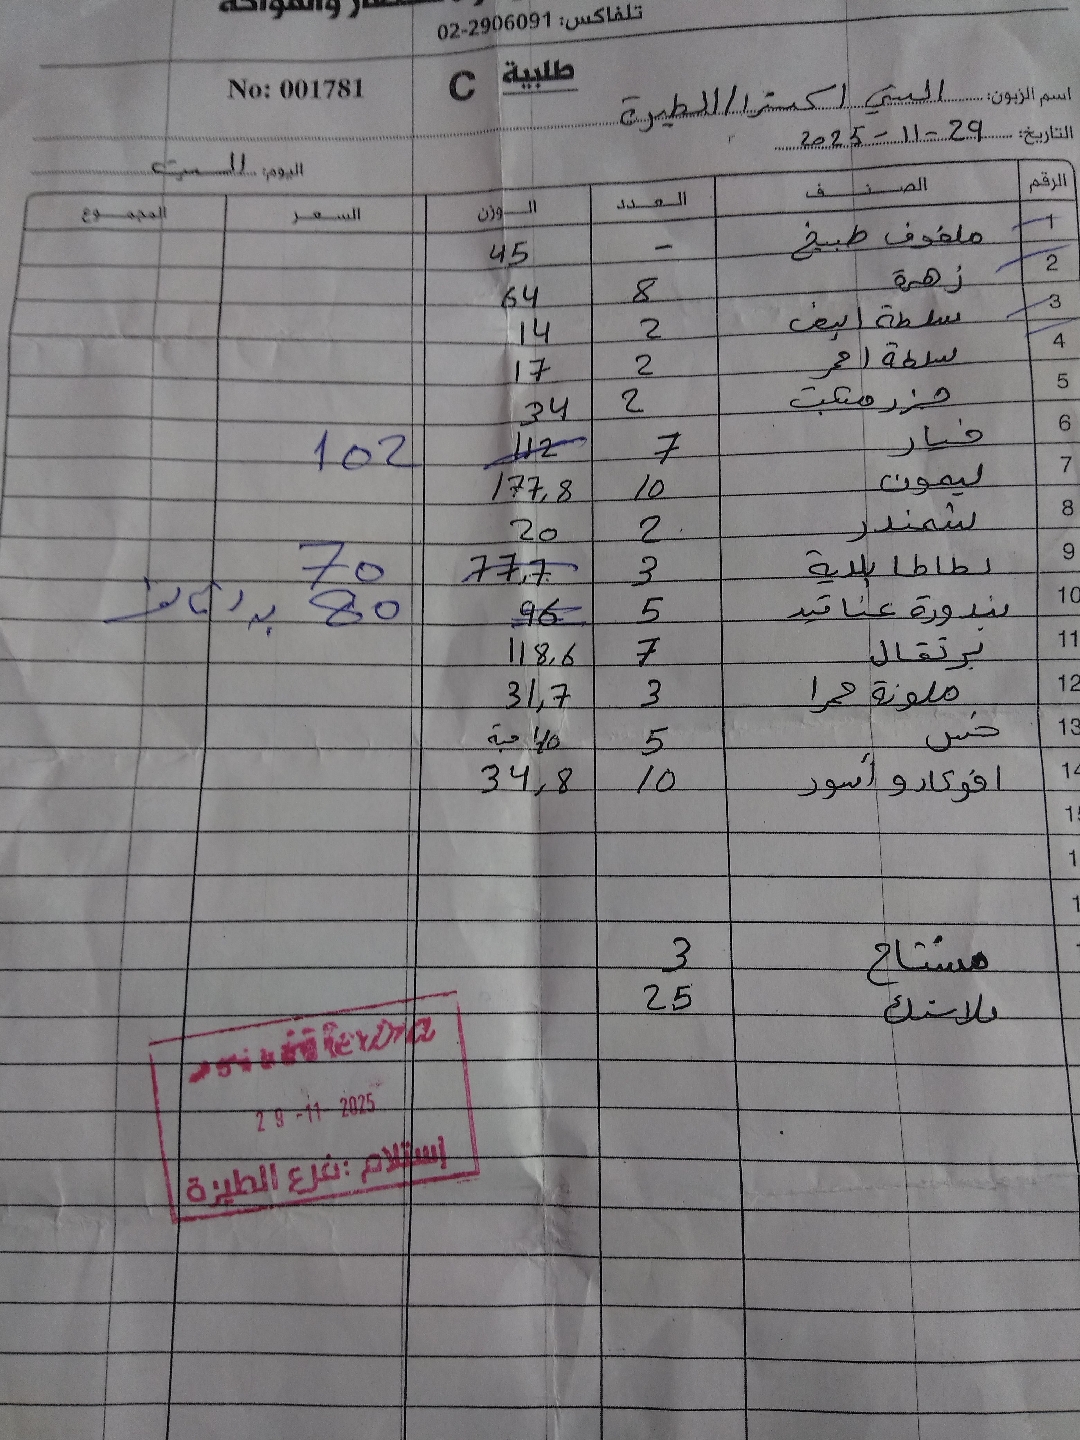 تلفاكس: 02-2906091
طلبية C No: 001781
اسم الزبون: السيتي اكسترا/الطيرة
التاريخ: 29-11-2025
اليوم: السبت
الرقم الصنف العدد الوزن السعر المجموع
1 ملفوف طبيخ - 45
2 زهرة 8 64
3 سلطة ابيض 2 14
4 سلطة احمر 2 17
5 جزر 2 34
6 خيار 7 112 102
7 ليمون 10 177,8
8 شمندر 2 20
9 بطاطا بلدية 3 77,7 70
10 بندورة عناقيد 5 96 80
11 برتقال 7 118,6
12 ملونة حمرا 3 31,7
13 خس 5 40 حبة
14 افوكادو أسود 10 34,8
مشتاح 3
بلاستك 25
29-11-2025
إستلام: فرع الطيرة